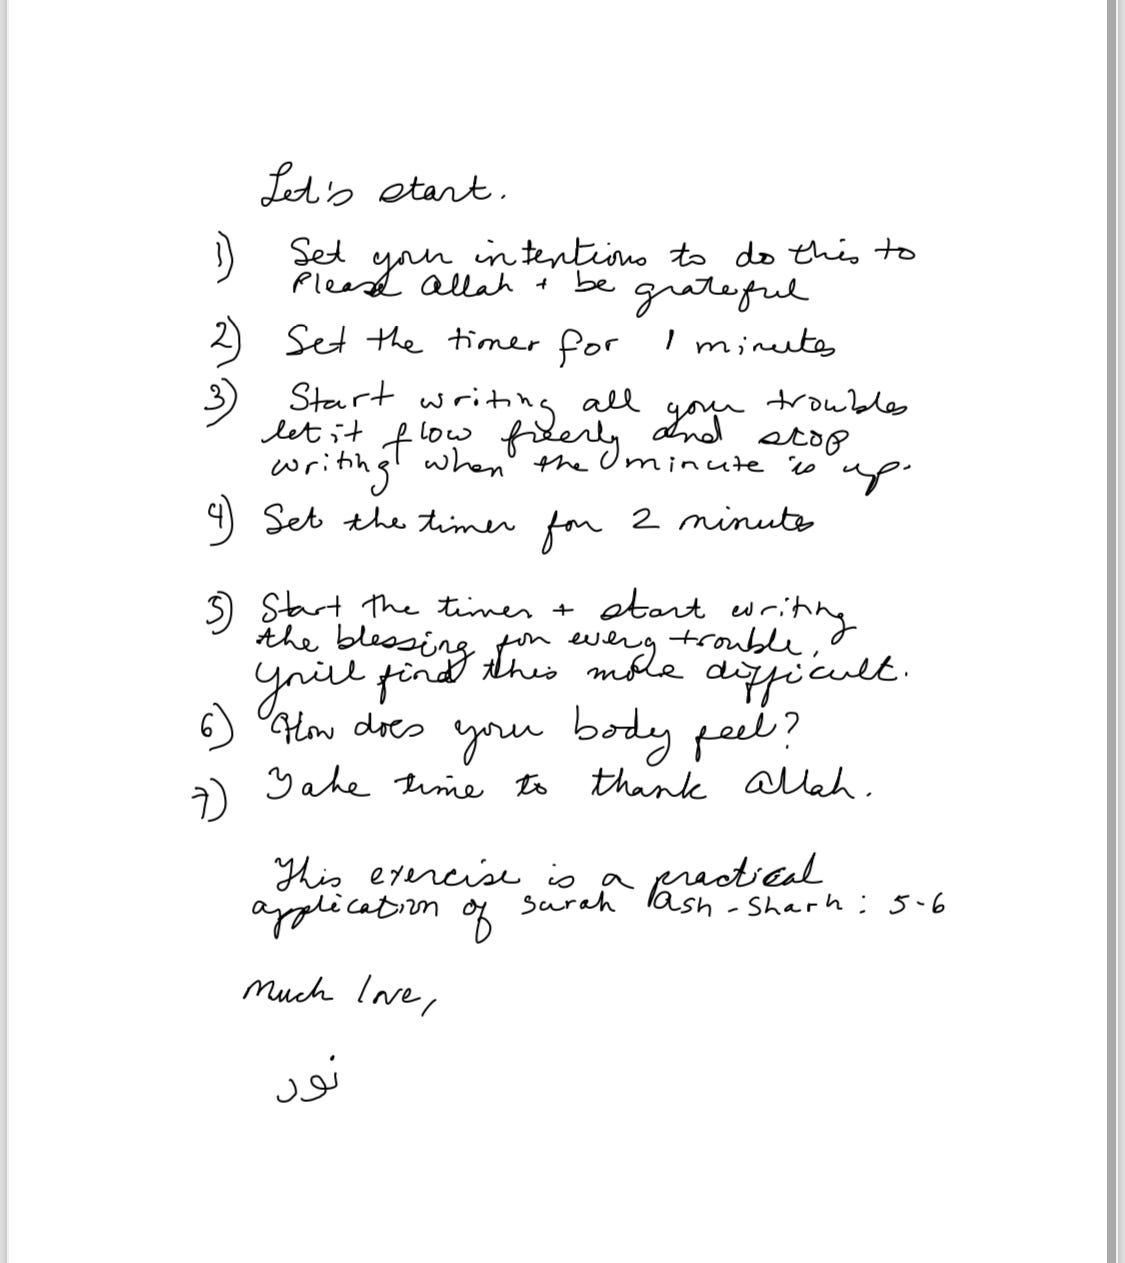 Let's start.
1) Set your intentions to do this to
Please Allah + be grateful
2) Set the timer for 1 minutes
3) Start writing all your troubles
let it flow freerly and stop
writing when the minute is up.
4) Set the timer for 2 minutes
5) Start the timer + start writing
the blessing for every trouble,
find this more difficult.
6) How does your body feel?
7) Take time to thank Allah.
This exercise is a practical
application of Surah Ash-Sharh: 5-6
Much love,
نور